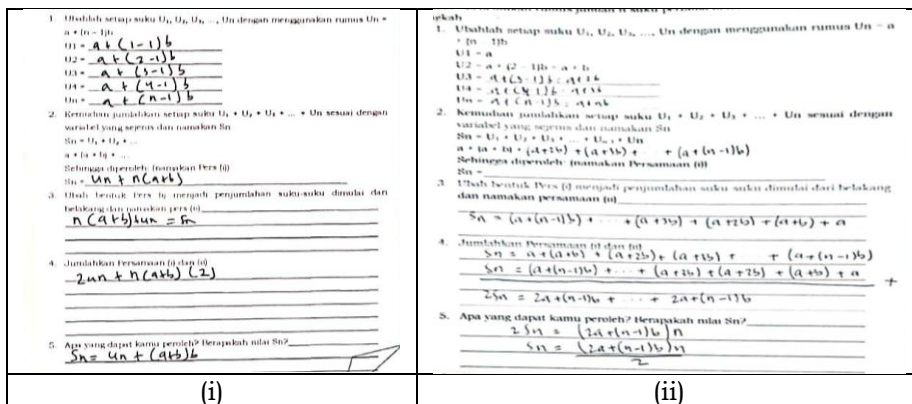 1. Ubahlah setiap suku U₁, U₂, U₃, ..., Un dengan menggunakan rumus Un =
a + (n – 1)b
U1 = a + (1-1)b
U2 = a + (2-1)b
U3 = a + (3-1)b
U4 = a + (4-1)b
Un = a + (n-1)b
2. Kemudian jumlahkan setiap suku U₁ + U₂ + U₃ + ... + Un sesuai dengan
variabel yang sejenis dan namakan Sn
Sn = U₁ + U₂ + ...
a + (a + b) + ...
Sehingga diperoleh: (namakan Pers (i))
Sn = Un + n(a+b)
3. Ubah bentuk Pers (i) menjadi penjumlahan suku-suku dimulai dari
belakang dan namakan pers (ii)
n(a+b)+un = Sn
4. Jumlahkan Persamaan (i) dan (ii)
2un + n(a+b) (2)
5. Apa yang dapat kamu peroleh? Berapakah nilai Sn?
Sn = un + (a+b)b
(i)
1. Ubahlah setiap suku U₁, U₂, U₃, ..., Un dengan menggunakan rumus Un = a
+ (n – 1)b
U1 = a
U2 = a + (2 – 1)b = a + b
U3 = a + (3-1)b = a+2b
U4 = a + (4-1)b = a+3b
Un = a + (n-1)b = a+nb
2. Kemudian jumlahkan setiap suku U₁ + U₂ + U₃ + ... + Un sesuai dengan
variabel yang sejenis dan namakan Sn
Sn = U₁ + U₂ + U₃ + ... + Uₙ₋₁ + Un
a + (a + b) + (a+2b) + (a+3b) + ... + (a+(n-1)b)
Sehingga diperoleh: (namakan Persamaan (i))
Sn =
3. Ubah bentuk Pers (i) menjadi penjumlahan suku-suku dimulai dari belakang
dan namakan persamaan (ii)
Sn = (a+(n-1)b) + ... + (a+3b) + (a+2b) + (a+b) + a
4. Jumlahkan Persamaan (i) dan (ii)
Sn = a + (a+b) + (a+2b) + (a+3b) + + (a+(n-1)b)
Sn = (a+(n-1)b) + ... + (a+3b) + (a+2b) + (a+b) + a
+
2Sn = 2a+(n-1)b + ... + 2a+(n-1)b
5. Apa yang dapat kamu peroleh? Berapakah nilai Sn?
2Sn = (2a+(n-1)b)n
Sn = (2a+(n-1)b)n
2
(ii)